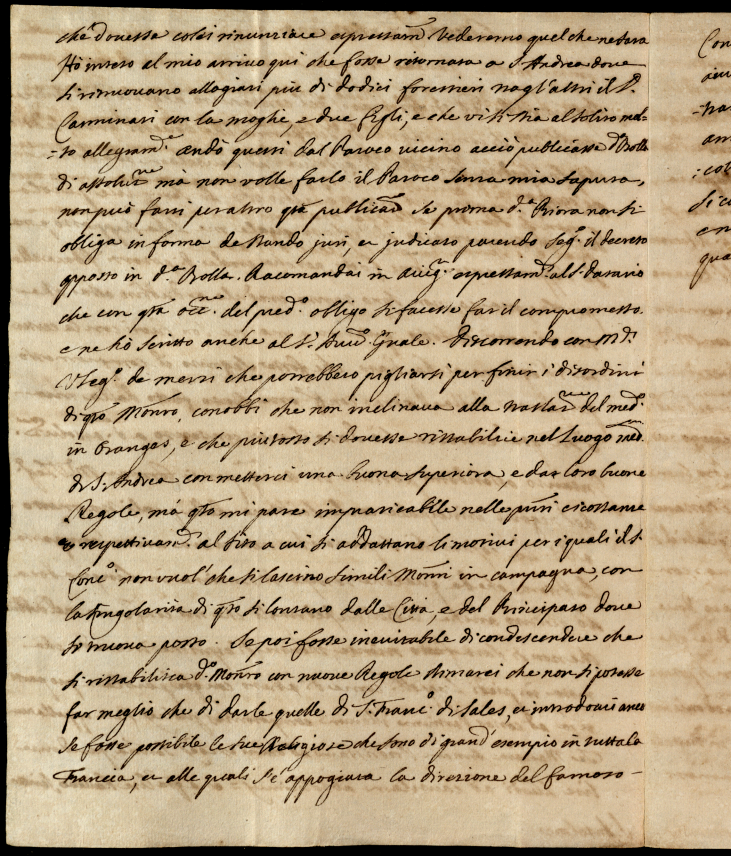 che dovesse colei rinunziare espressam.te Vederemo quel che ne sara
Hò inteso al mio arrivo qui che fosse ritornata a S. Andrea dove
si ritrovavano allogiati più di dodici forestieri tra gl'altri il S.r
Caminari con la moglie, e due figli, e che vi si stia al solito mol-
-to allegram.te andò questi dal Paroco vicino acciò publicasse d.a Bolla
di assoluz.ne mà non volle farlo il Paroco senza mia saputa,
non può farsi per altro q.ta publicaz.ne se prima d.a Priora non si
obliga in forma de stando juri, et judicato parendo seg.o il decreto
apposto in d.a Bolla. Racomandai in espressam.te al S. Datario
che con q.ta occ.ne del pred.o obligo si facesse far il compromesso.
e ne hò scritto anche al S.r Discorrendo con M.r
Vleg.o de mezzi che potrebbero pigliarsi per finir i disordini
di q.to Mon.ro, conobbi che non inclinava alla traslaz.ne del med.o
in Oranges, e che piutosto si dovesse ristabilire nel luogo med.o
di S. Andrea con metterci una buona superiora, e dar loro buone
Regole, mà q.to mi pare impraticabile nelle p.nti circostanze
e respettivam.te al sito a cui si addattano li motivi per i quali il S.
Conc.o non vuol' che si lascino simili Mon.ri in campagna, con
la singolarità di q.to si lontano dalle Città, e del Principato dove
si trova posto. Se poi fosse inevitabile di condescendere che
si ristabilisca d.o Mon.ro con nuove Regole stimarei che non si potesse
far meglio che di darle quelle di S. Franc.o di Sales, et introdurci anco
se fosse possibile le sue Religiose che sono di grand' esempio in tutta la
Francia, et alle quali s'è appogiata la direzione del famoso -